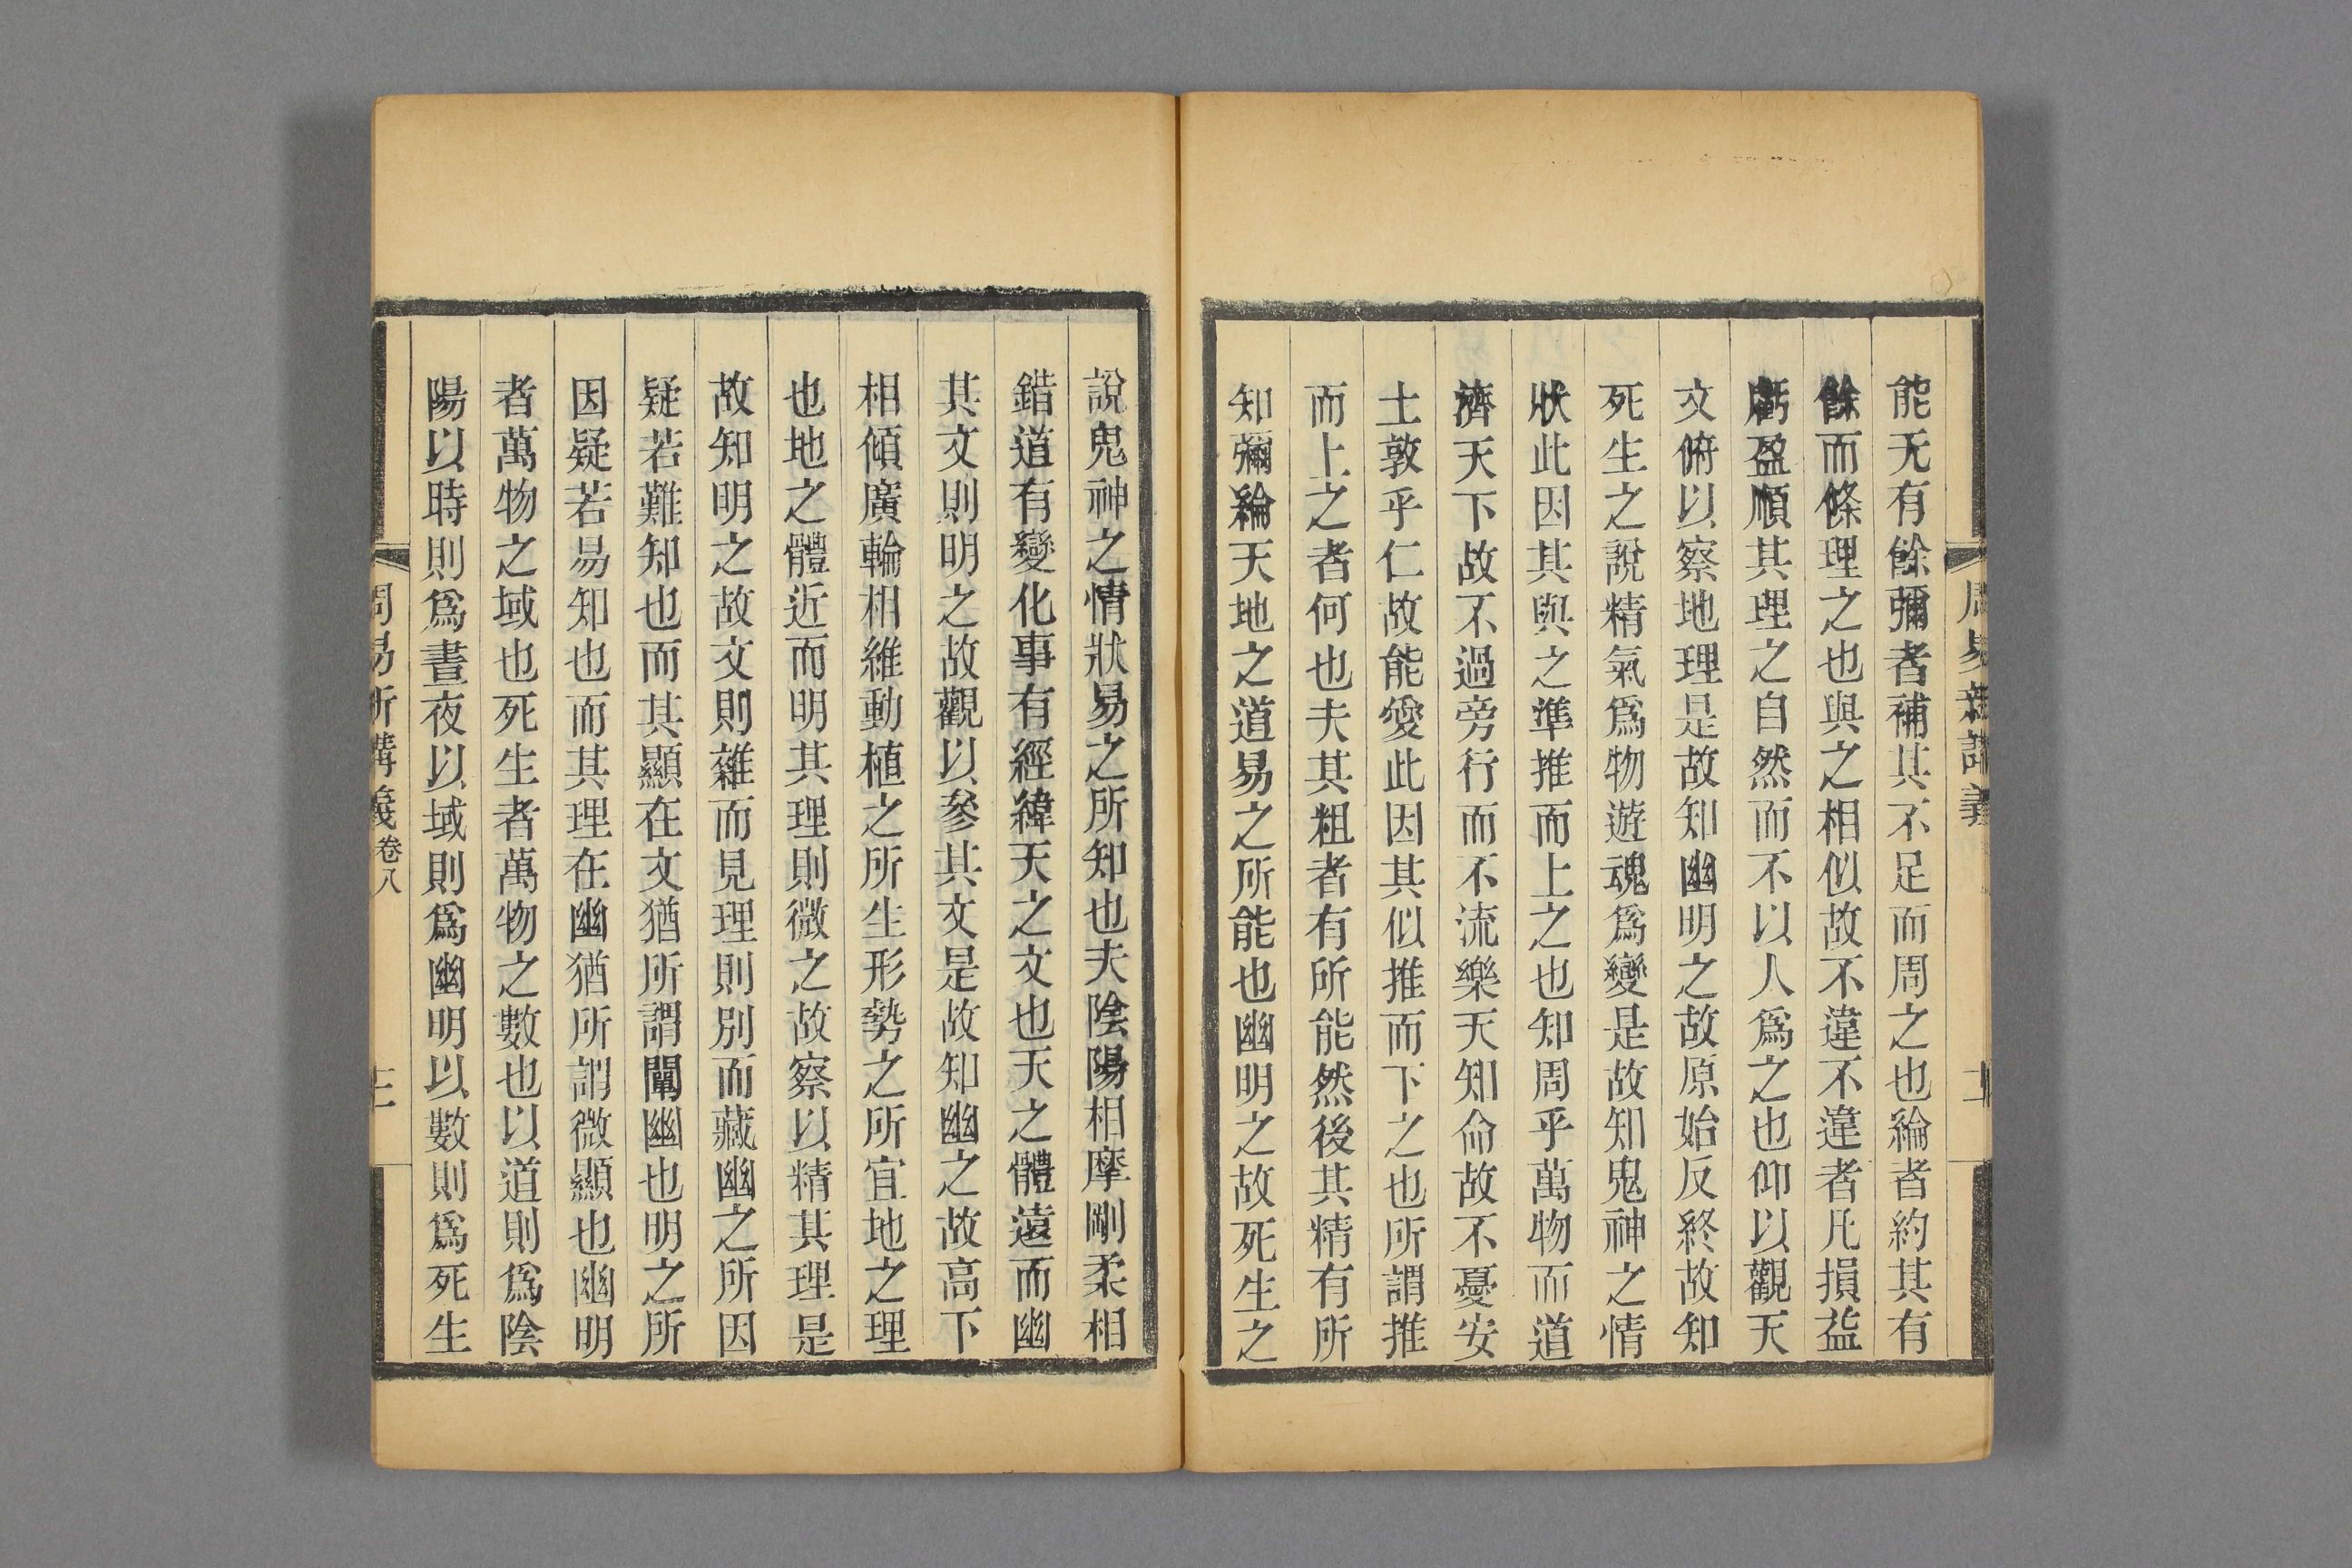 周易新講義
二
能无有餘彌者補其不足而周之也綸者約其有
餘而條理之也與之相似故不違不違者凡損益
虧盈順其理之自然而不以人爲之也仰以觀天
文俯以察地理是故知幽明之故原始反終故知
死生之說精氣爲物遊魂爲變是故知鬼神之情
狀此因其與之準推而上之也知周乎萬物而道
濟天下故不過旁行而不流樂天知命故不憂安
土敦乎仁故能愛此因其似推而下之也所謂推
而上之者何也夫其粗者有所能然後其精有所
知彌綸天地之道易之所能也幽明之故死生之
說鬼神之情狀易之所知也夫陰陽相摩剛柔相
錯道有變化事有經緯天之文也天之體遠而幽
其文則明之故觀以參其文是故知幽之故高下
相傾廣輪相維動植之所生形勢之所宜地之理
也地之體近而明其理則微之故察以精其理是
故知明之故文則雜而見理則別而藏幽之所因
疑若難知也而其顯在文猶所謂闡幽也明之所
因疑若易知也而其理在幽猶所謂微顯也幽明
者萬物之域也死生者萬物之數也以道則爲陰
陽以時則爲晝夜以域則爲幽明以數則爲死生
周易新講義卷八